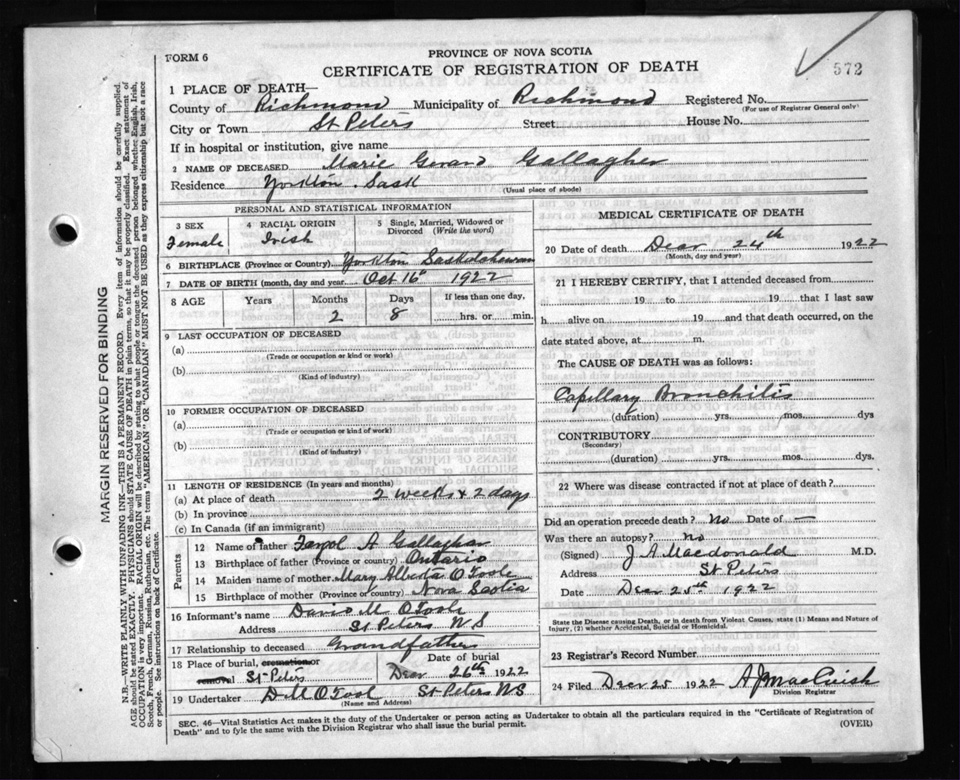 FORM 6
PROVINCE OF NOVA SCOTIA
CERTIFICATE OF REGISTRATION OF DEATH
572
1 PLACE OF DEATH—
County of Richmond Municipality of Richmond Registered No.
(For use of Registrar General only)
City or Town St Peters Street House No.
If in hospital or institution, give name
2 NAME OF DECEASED Marie Gerard Gallagher
Residence Yorkton. Sask
(Usual place of abode)
PERSONAL AND STATISTICAL INFORMATION
3 SEX Female
4 RACIAL ORIGIN Irish
5 Single, Married, Widowed or Divorced (Write the word)
6 BIRTHPLACE (Province or Country) Yorkton Saskatchewan
7 DATE OF BIRTH (month, day and year) Oct 16th 1922
8 AGE Years Months Days If less than one day,
2 8 hrs. or min.
9 LAST OCCUPATION OF DECEASED
(a)
(Trade or occupation or kind of work)
(b)
(Kind of industry)
10 FORMER OCCUPATION OF DECEASED
(a)
(Trade or occupation or kind of work)
(b)
(Kind of industry)
11 LENGTH OF RESIDENCE (In years and months)
(a) At place of death 2 weeks & 2 days
(b) In province
(c) In Canada (if an immigrant)
Parents
12 Name of father A Gallagher
13 Birthplace of father (Province or country) Ontario
14 Maiden name of mother Mary Alberta O Toole
15 Birthplace of mother (Province or country) Nova Scotia
16 Informant's name David M O'Toole
Address St Peters NS
17 Relationship to deceased Grandfather
18 Place of burial, cremation or removal St Peters
Date of burial Decr 26th 1922
19 Undertaker D M O'Tool St Peters NS
(Name and Address)
MEDICAL CERTIFICATE OF DEATH
20 Date of death Decr 24th 1922
(Month, day and year)
21 I HEREBY CERTIFY, that I attended deceased from
19 to 19 that I last saw
h alive on 19 and that death occurred, on the
date stated above, at m.
The CAUSE OF DEATH was as follows:
Capillary Bronchitis
(duration) yrs. mos. dys
CONTRIBUTORY
(Secondary)
(duration) yrs. mos. dys.
22 Where was disease contracted if not at place of death?
Did an operation precede death? No Date of —
Was there an autopsy? no
(Signed) J A Macdonald M.D.
Address St Peters
Date Decr 25th 1922
State the Disease causing Death, or in death from Violent Causes, state (1) Means and Nature of
Injury, (2) whether Accidental, Suicidal or Homicidal.
23 Registrar's Record Number
24 Filed Decr 25 1922 A J MacCuish
Division Registrar
SEC. 46—Vital Statistics Act makes it the duty of the Undertaker or person acting as Undertaker to obtain all the particulars required in the "Certificate of Registration of
Death" and to fyle the same with the Division Registrar who shall issue the burial permit.
(OVER)
MARGIN RESERVED FOR BINDING
N.B.—WRITE PLAINLY WITH UNFADING INK—THIS IS A PERMANENT RECORD. Every item of information should be carefully supplied.
AGE should be stated EXACTLY. PHYSICIANS should STATE CAUSE OF DEATH in plain terms, so that it may be properly classified. Exact statement of
OCCUPATION is very important. RACIAL ORIGIN will be described by stating to what people or tongue the deceased person belonged whether English, Irish,
Scotch, French, German, Russian, Ruthenian, etc. The terms "AMERICAN" OR "CANADIAN" MUST NOT BE USED as they express citizenship but not a race
or people. See instructions on back of Certificate.